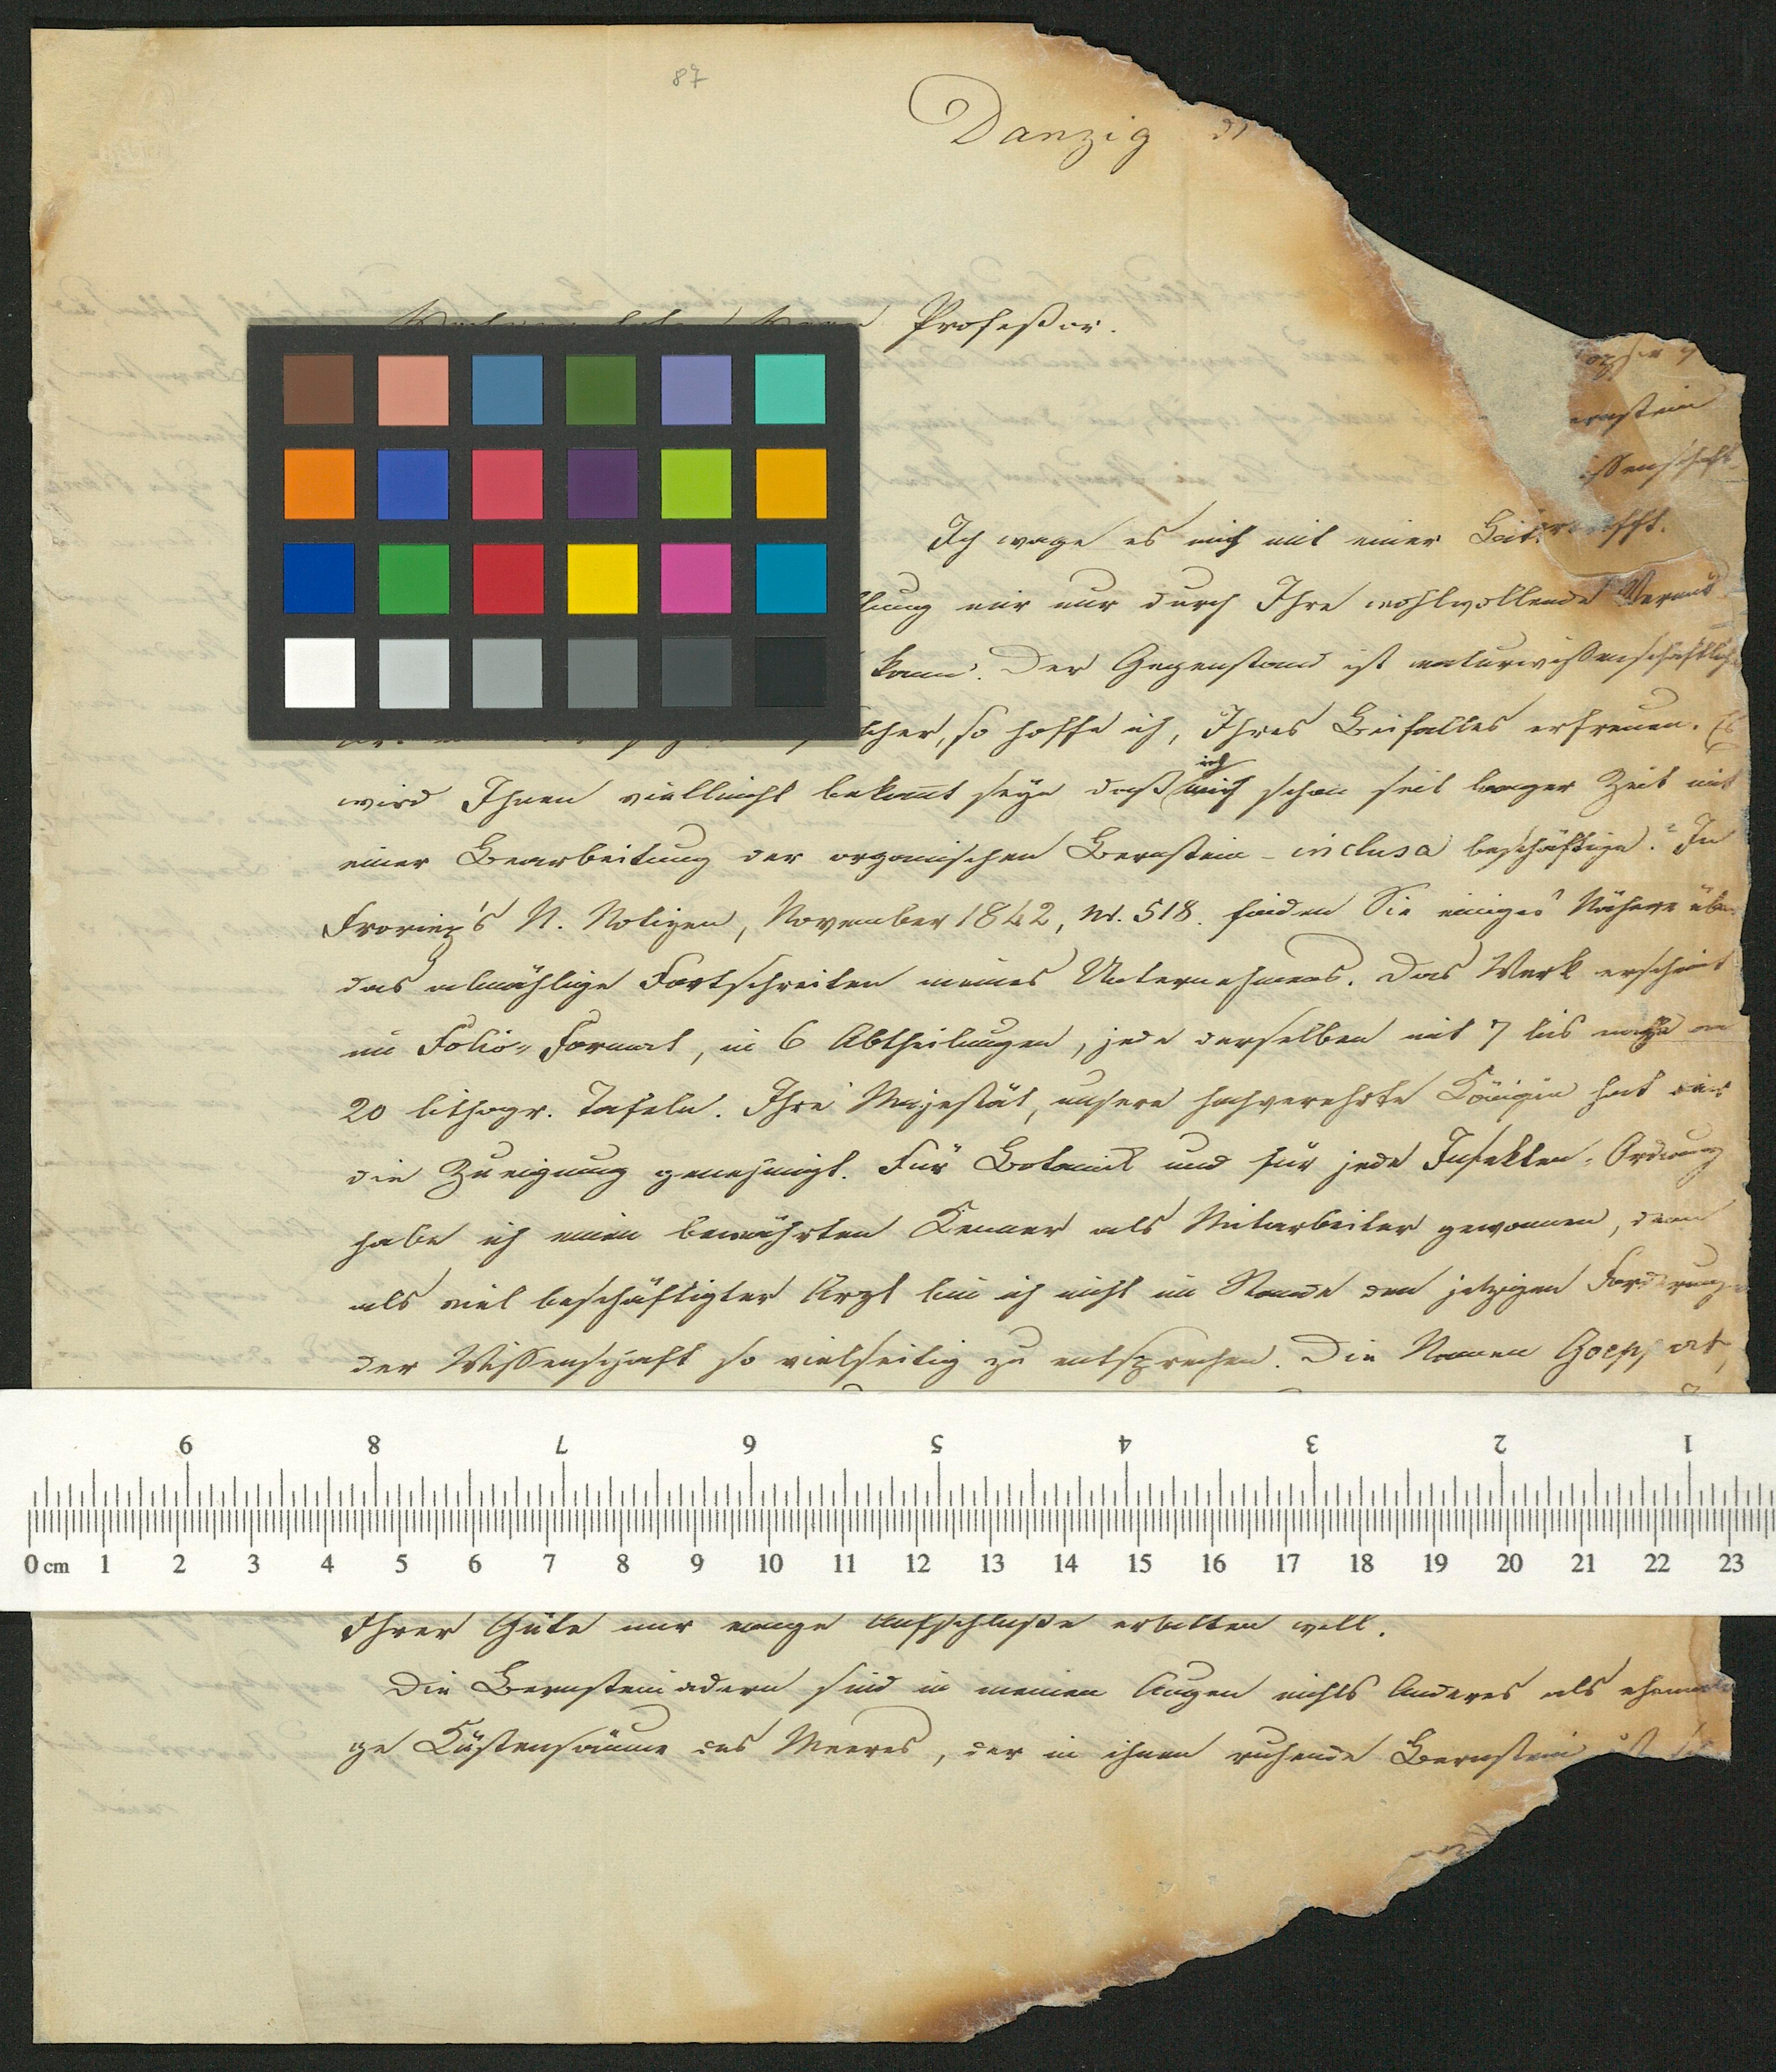 87
Danzig
Professor.
ernstein
issenschaft
Ich wage es mich mit einer
mir nur durch Ihre wohlwollende
kann. Der Gegenstand ist naturwißenschaftlich
so hoffe ich, Ihres Beifalles erfreuen. Es
wird Ihnen vielleicht bekannt seyn daß ich mich schon seit langer Zeit mit
einer Bearbeitung der organischen Bernstein-inclusa beschäftige. In
Froriep's N. Notizen, November 1842, Nr. 518. finden Sie einiges Nähere über
das allmählige Fortschreiten meines Unternehmens. Das Werk erscheint
in Folio-Format, in 6 Abtheilungen, jede derselben mit 7 bis nahe an
20 lithogr. Tafeln. Ihre Majestät, unsere hochverehrte Königin hat mir
die Zueignung genehmigt. Für Botanik und für jede Insekten-Ordnung
habe ich einen bewährten Kenner als Mitarbeiter gewonnen, denn
als viel beschäftigter Arzt bin ich nicht im Stande den jetzigen Forderungen
der Wissenschaft so vielseitig zu entsprechen. Die Namen Goeppert,
9 8 7 6 5 4 3 2 1
0 cm 1 2 3 4 5 6 7 8 9 10 11 12 13 14 15 16 17 18 19 20 21 22 23
Ihrer Güte mir einige Aufschlüße erbitten will.
Die Bernsteinadern sind in meinen Augen nichts Anderes als ehemali
ge Küstensäume des Meeres, der in ihnen ruhende Bernstein ist